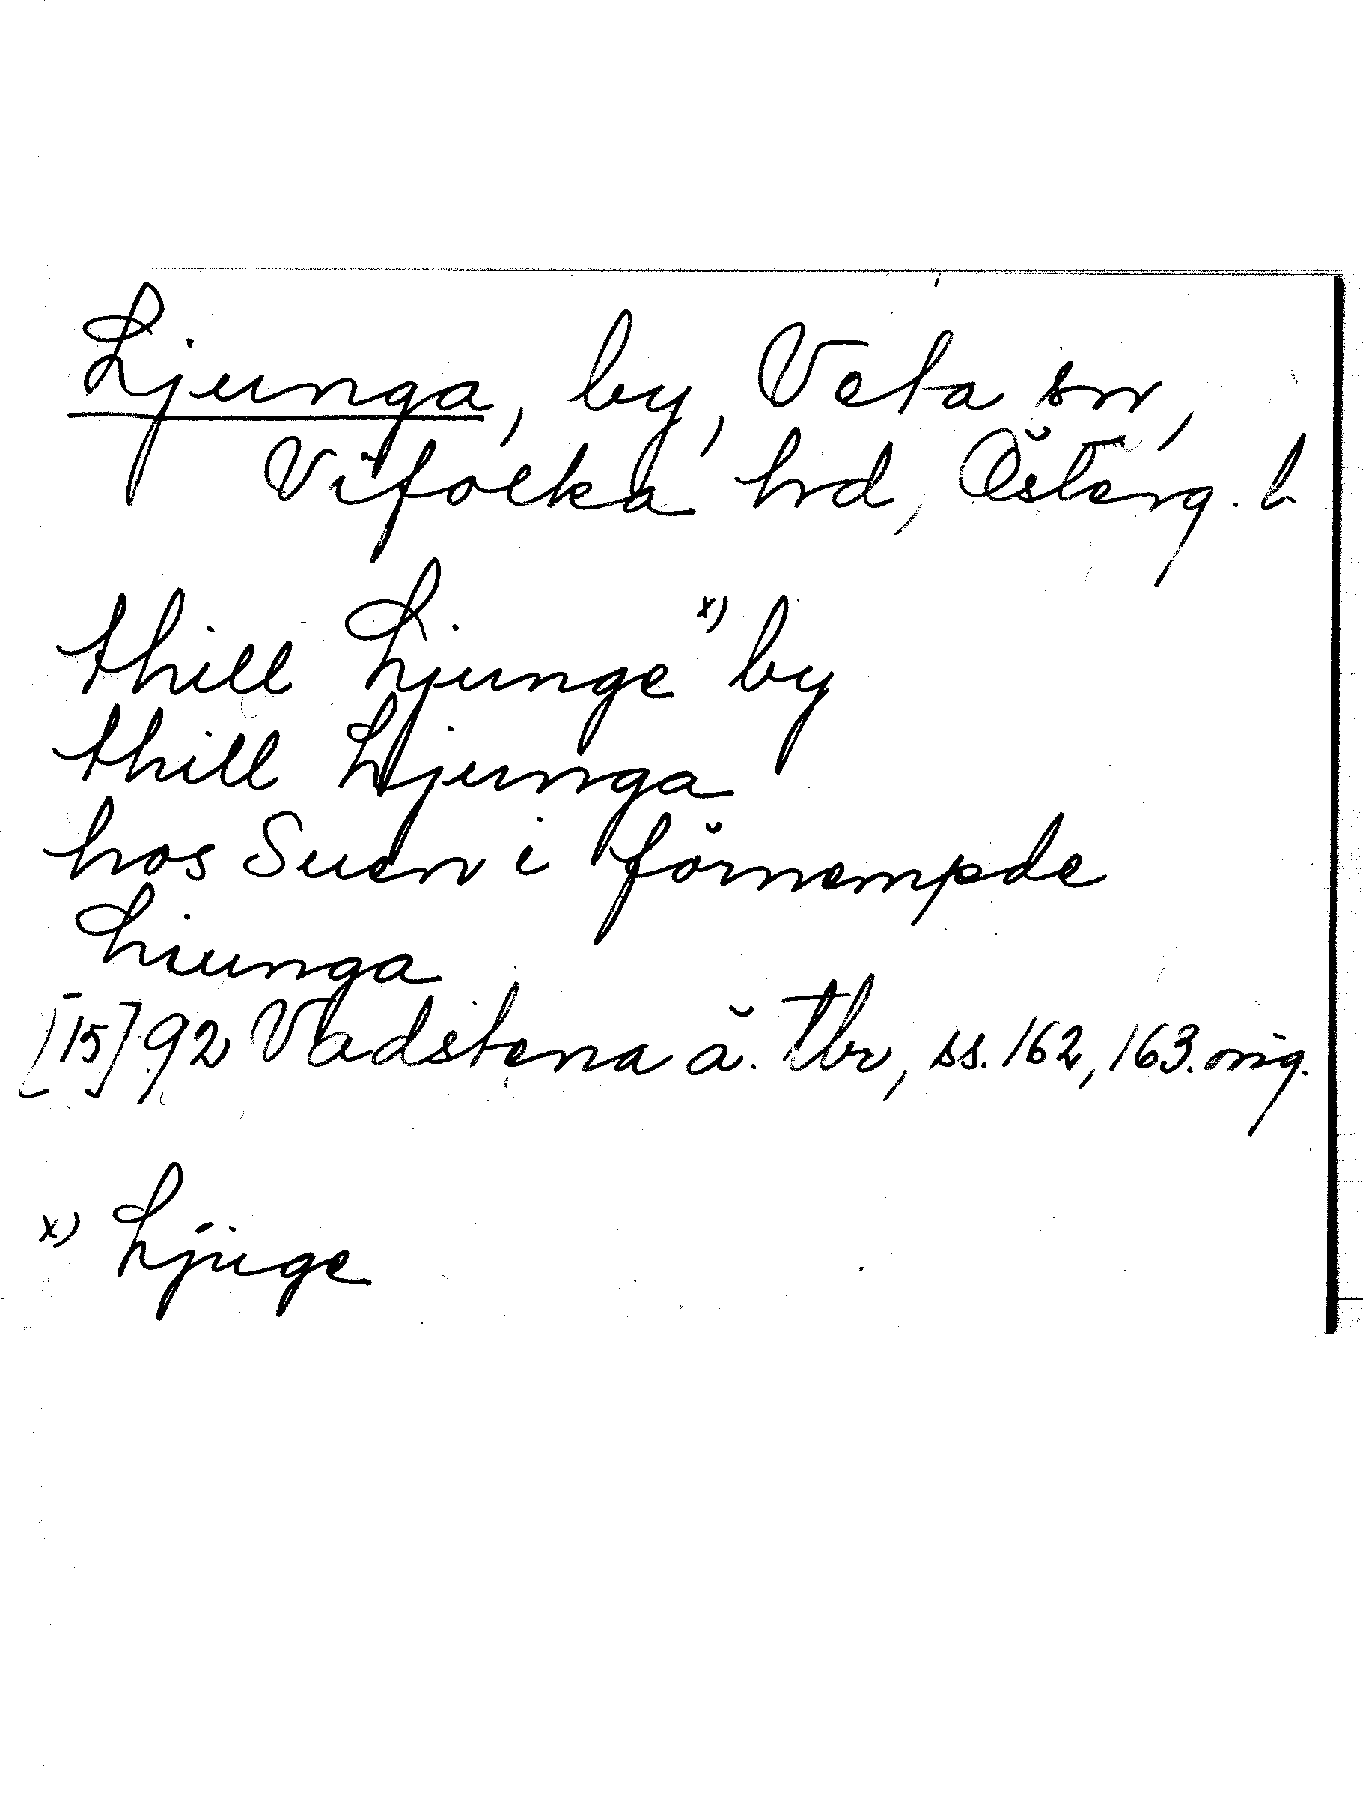 Ljunga, by, Veta sn,
Vifolka hrd, Österg. l.
thill Ljunge x) by
thill Ljunga
hos Suen i förnempde
Liunga
[15]92 Vadstena ä. Tbr, ss. 162, 163. orig.
x) Ljuge